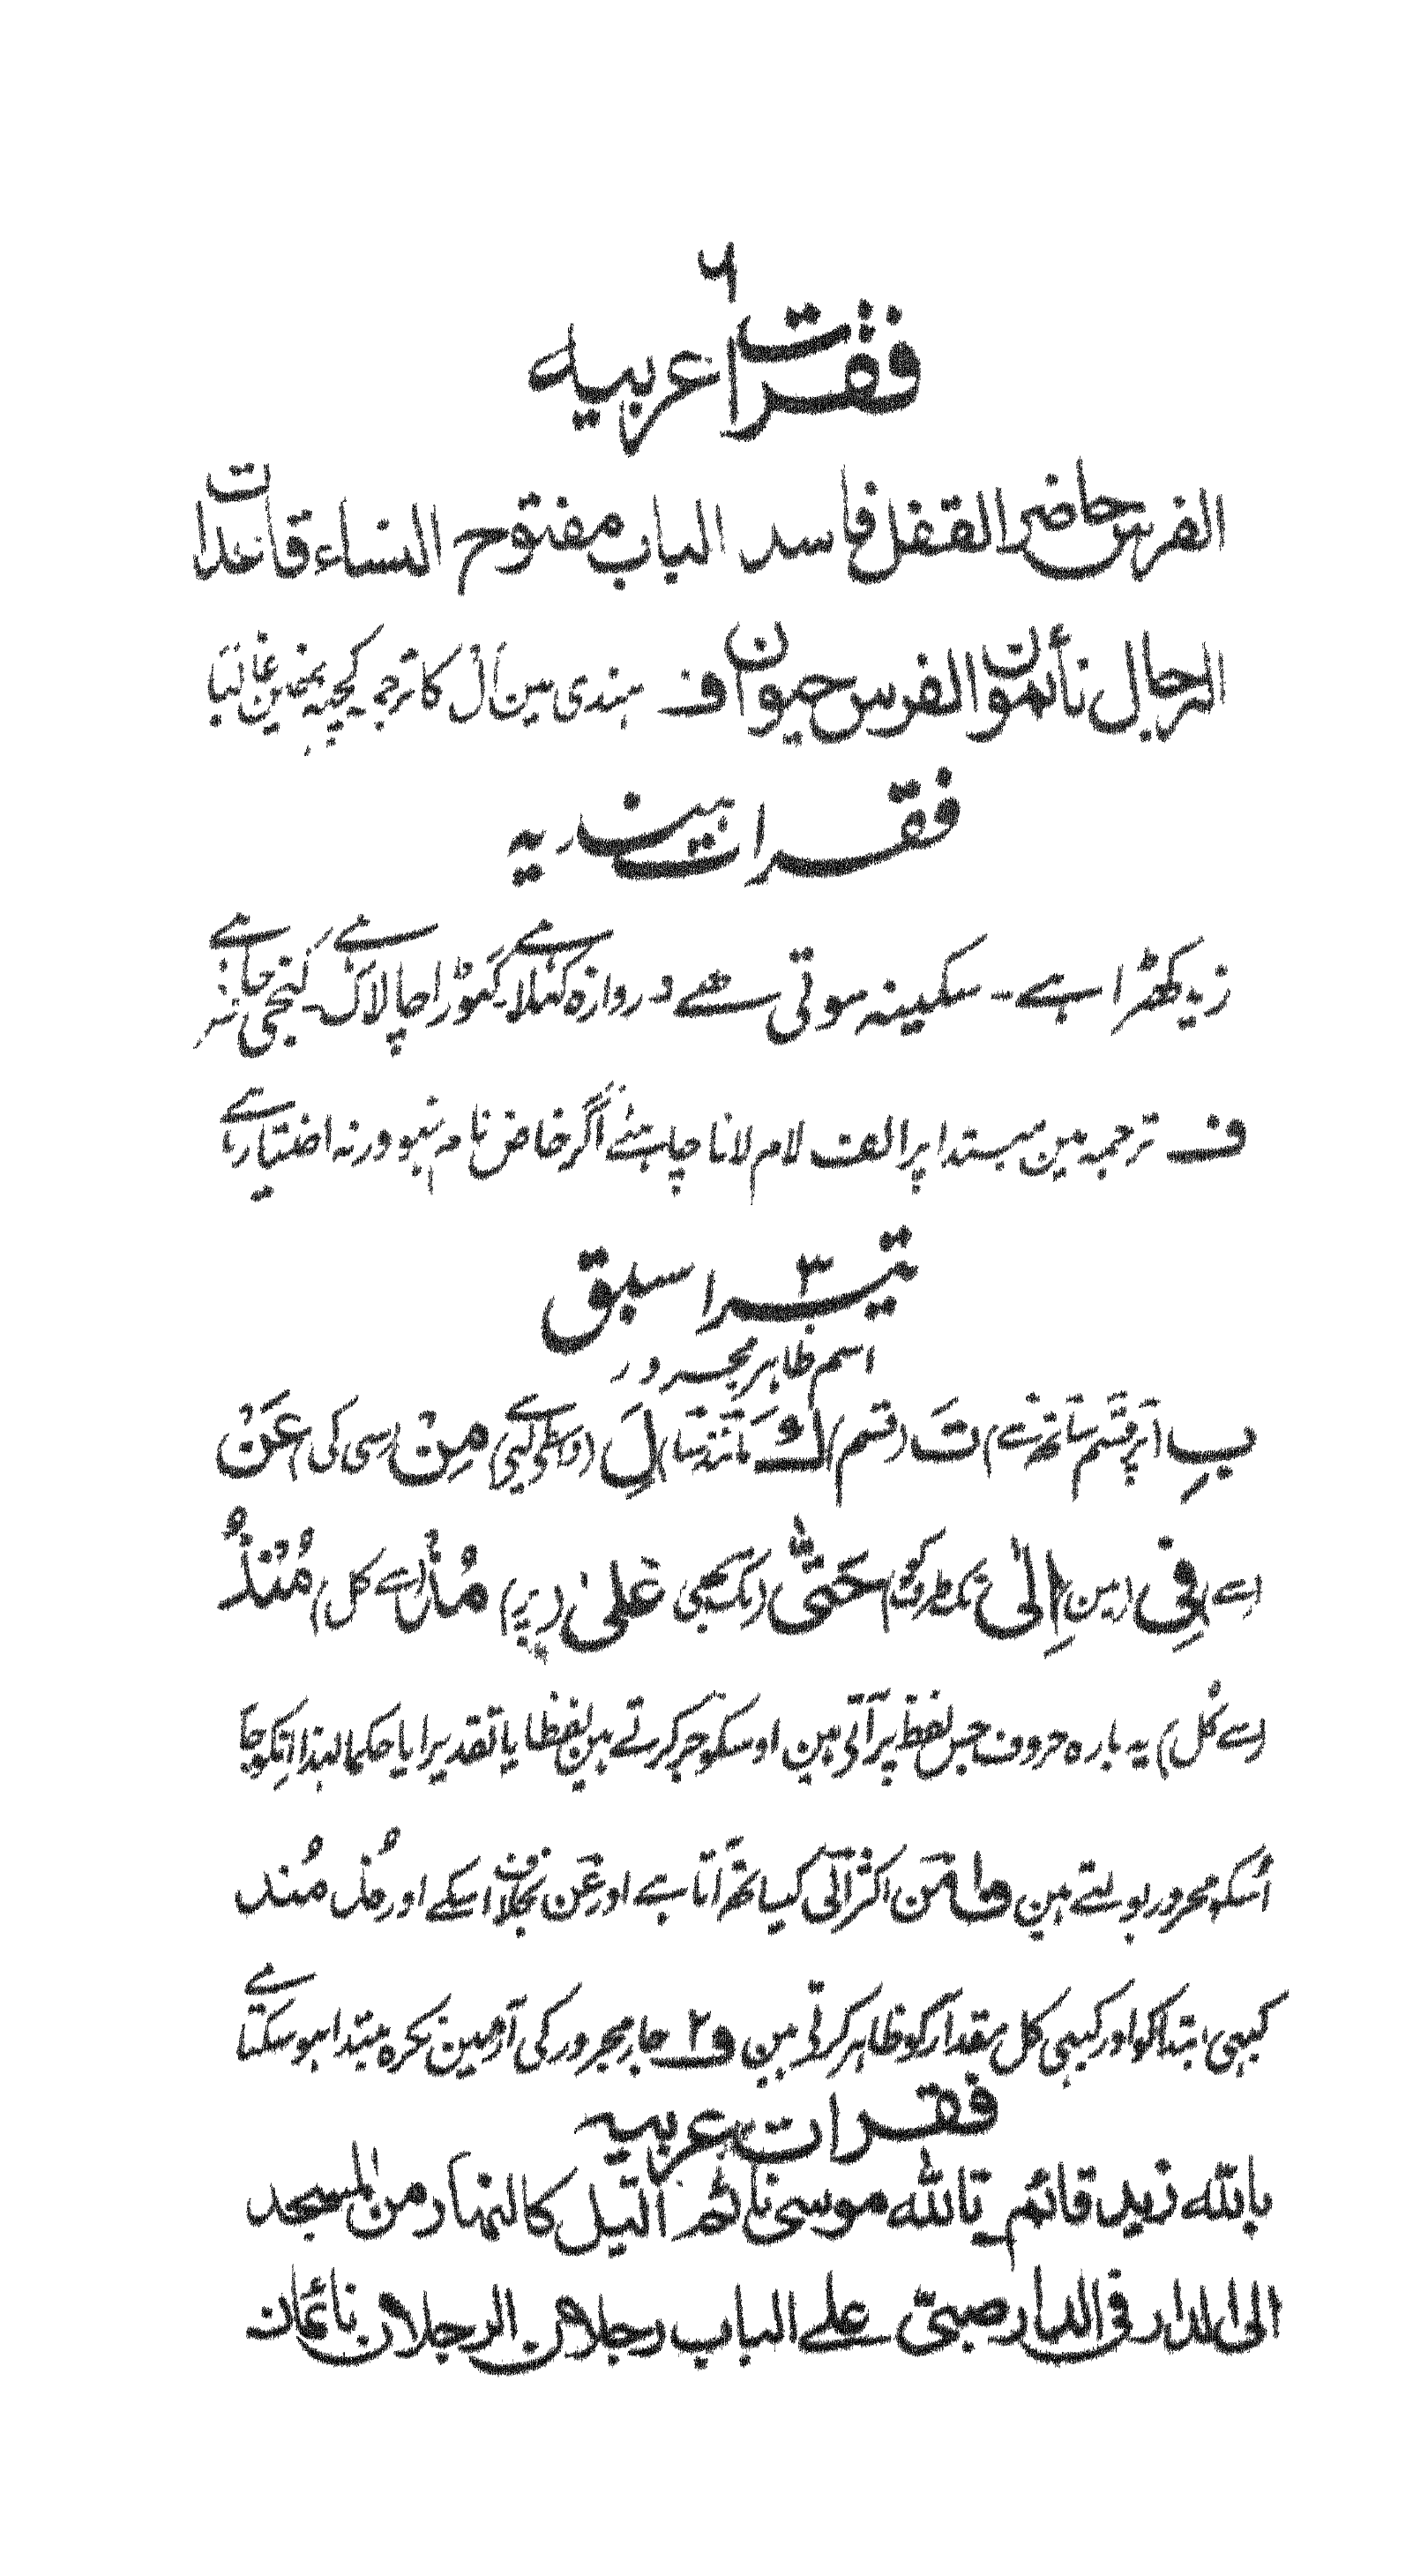 ۶
فقرات عربیہ
الفرس حاضر القفل فاسد الباب مفتوح النساء قاعدات
الرجال نائمون الفرس حیوان ف ہندی مین اَلْ کا ترجمہ کچہہ نھین غالبًا
فقرات ہندیہ
زید کھڑا ہے ۔ سکینہ سوتی ھے دروازہ کہلا ہے ۔ گہوڑا چالاک ہے ۔ کنجی خانہ
ف ترجمہ مین مبتدا پر الف لام لانا چاہئے اگر خاص نام نہو ورنہ اختیار ہے
تیسرا سبق ۳
اسم ظاہر مجرور
بِ (پر قسم ساتھ سے) تَ (قسم) كَ (مانند سا) لِ (واسطے لیے) مِنْ (سی کی) عَنْ
(سے) فِی (مین) اِلٰی (تک طرف کو) حَتّٰی (تک بھی) عَلیٰ (پر) مُذْ (سے کل) مُنْذُ
(سے کل) یہ بارہ حروف جس لفظ پر آتی ہین اوسکو جر کرتے ہین لفظا یا تقدیرا یا حکما لہذا انکو جار
اُسکو مجرور بولتے ہین ف۱ مِن اکثر آلی کیساتھ آتا ہے اور عَن بخلاف اسکے اور مُذ مُنذ
کبہی ابتدا کو اور کبہی کل مقدار کو ظاہر کرتی ہین ف۲ جار مجرور کی آڑ مین نکرہ مبتدا ہو سکتا ہے
فقرات عربیہ
باللّٰہ زید قائم تاللّٰہ موسی نائم اللیل کالنہار من المسجد
الی الدار فی الدار صبیّ علے الباب رجلان الرجلان نائمان